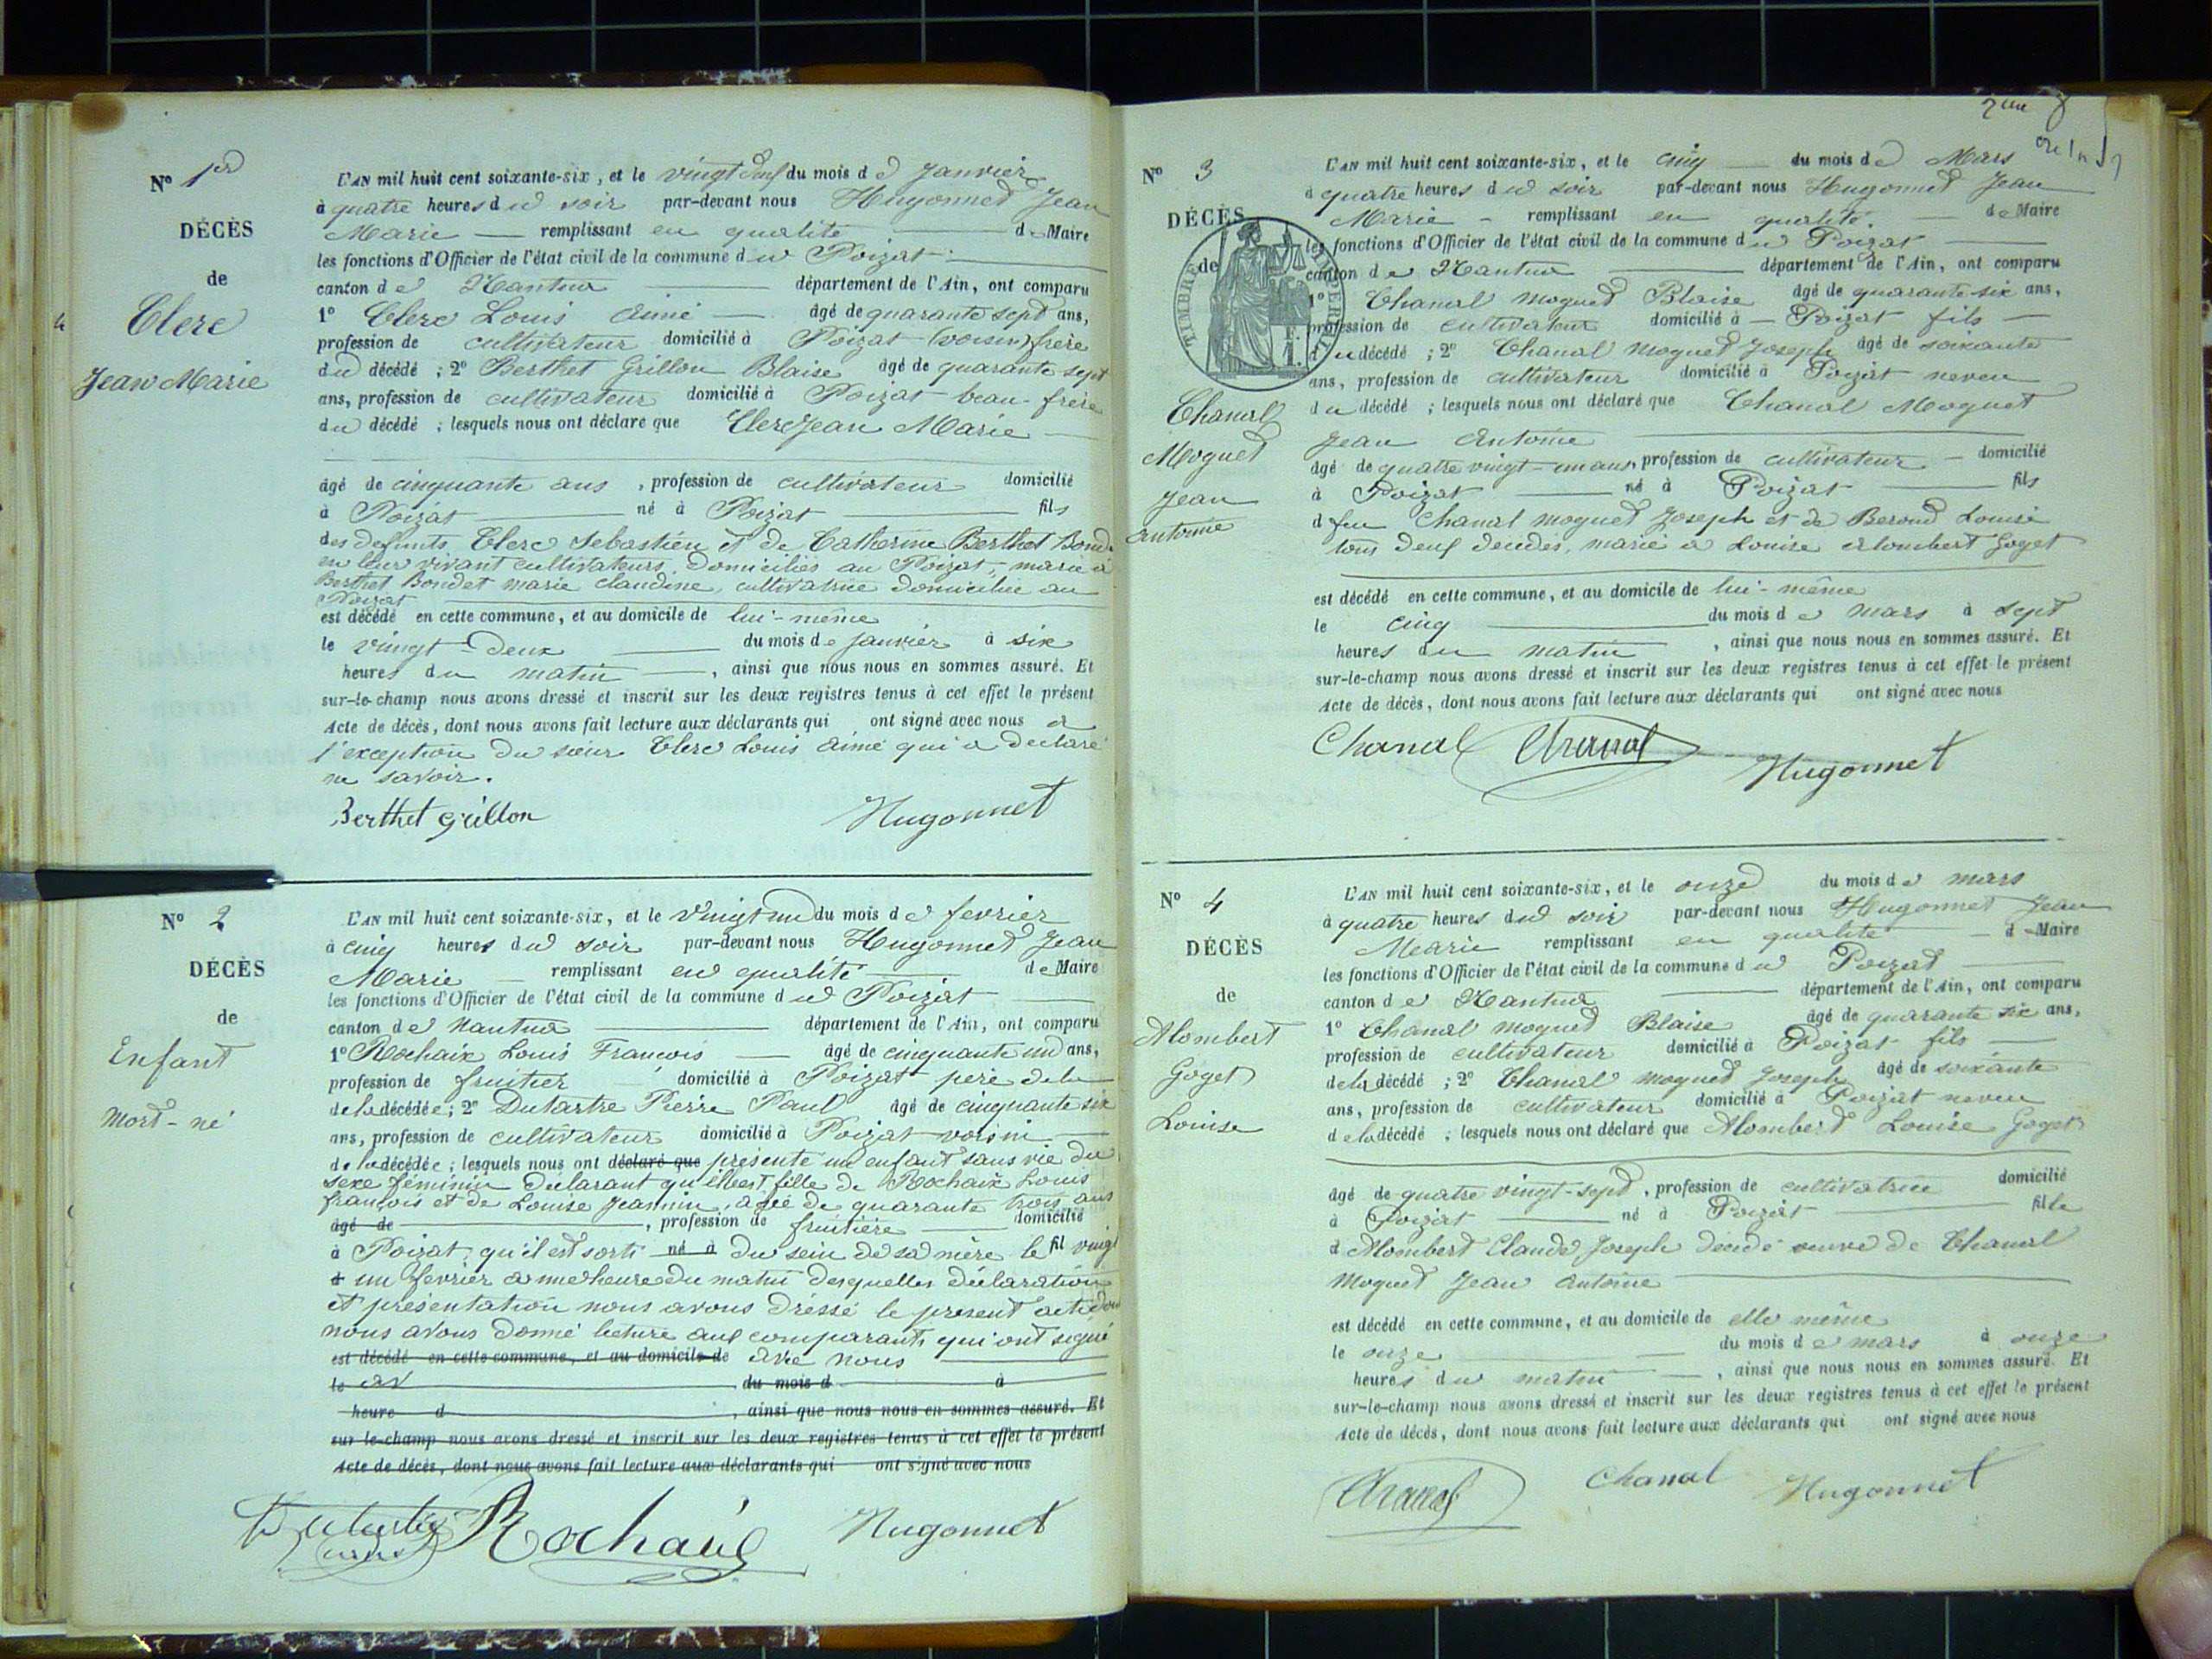 No 1er
DÉCÈS
de
Clerc
Jean Marie
L'AN mil huit cent soixante-six, et le vingt deux du mois de Janvier
à quatre heures du soir par-devant nous Hugonnet Jean
Marie — remplissant en qualité — de Maire
les fonctions d'Officier de l'état civil de la commune du Poizat
canton de Nantua — département de l'Ain, ont comparu
1° Clerc Louis Aimé — âgé de quarante sept ans,
profession de cultivateur domicilié à Poizat (voisin) frère
du décédé ; 2° Berthet Grillon Blaise âgé de quarante sept
ans, profession de cultivateur domicilié à Poizat beau-frère
du décédé ; lesquels nous ont déclaré que Clerc Jean Marie —
âgé de cinquante ans, profession de cultivateur domicilié
à Poizat — né à Poizat — fils
des defunts Clerc Sebastien et de Catherine Berthet Bondet
en leur vivant cultivateurs domiciliés au Poizat, marié à
Berthet Bondet marie claudine, cultivatrice domiciliée au
Poizat
est décédé en cette commune, et au domicile de lui-même
le vingt-deux — du mois de janvier à six
heures du matin —, ainsi que nous nous en sommes assuré. Et
sur-le-champ nous avons dressé et inscrit sur les deux registres tenus à cet effet le présent
Acte de décès, dont nous avons fait lecture aux déclarants qui ont signé avec nous à
l'exception du sieur Clerc Louis aimé qui a declaré
ne savoir.
Berthet Grillon Hugonnet
No 2
DÉCÈS
de
Enfant
mort-né
L'AN mil huit cent soixante-six, et le vingt un du mois de fevrier
à cinq heures du soir par-devant nous Hugonnet Jean
Marie — remplissant en qualité — de Maire
les fonctions d'Officier de l'état civil de la commune du Poizat —
canton de Nantua — département de l'Ain, ont comparu
1° Rochaix Louis François — âgé de cinquante un ans,
profession de fruitier domicilié à Poizat père de la
de la décédée ; 2° Dutartre Pierre Paul âgé de cinquante six
ans, profession de cultivateur domicilié à Poizat voisin —
de la décédée ; lesquels nous ont déclaré que présenté un enfant sans vie du
sexe féminin déclarant qu'il est fille de Rochaix Louis
françois et de Louise Jeannin, agée de quarante trois ans
âgé de —, profession de fruitière — domicilié
à Poizat, qu'il est sorti né à du sein de sa mère le fil vingt
d un fevrier à une heure du matin desquelles déclaration
et présentation nous avons dressé le present acte dont
nous avons donné lecture aux comparants qui ont signé
est décédé en cette commune, et au domicile de avec nous —
le av — du mois d — à
heure d —, ainsi que nous nous en sommes assuré. Et
sur-le-champ nous avons dressé et inscrit sur les deux registres tenus à cet effet le présent
Acte de décès, dont nous avons fait lecture aux déclarants qui ont signé avec nous
Dutartre Rochaix Hugonnet
No 3
DÉCÈS
de
TIMBRE IMPERIAL
Chanal
Moguet
Jean
antoine
L'AN mil huit cent soixante-six, et le cinq — du mois de Mars
à quatre heures du soir par-devant nous Hugonnet Jean
Marie — remplissant en qualité — de Maire
les fonctions d'Officier de l'état civil de la commune du Poizat —
canton de Nantua — département de l'Ain, ont comparu
1° Chanal moguet Blaise âgé de quarante-six ans,
profession de cultivateur domicilié à Poizat fils —
du décédé ; 2° Chanal moguet Joseph âgé de soixante
ans, profession de cultivateur domicilié à Poizat neveu
du décédé ; lesquels nous ont déclaré que Chanal Moguet
Jean Antoine —
âgé de quatre vingt-un ans, profession de cultivateur — domicilié
à Poizat — né à Poizat — fils
d feu Chanal moguet Joseph et de Beroud Louise
tous deux decedés, marié à Louise alombert Goget
est décédé en cette commune, et au domicile de lui-même
le cinq — du mois de mars à sept
heures du matin, ainsi que nous nous en sommes assuré. Et
sur-le-champ nous avons dressé et inscrit sur les deux registres tenus à cet effet le présent
Acte de décès, dont nous avons fait lecture aux déclarants qui ont signé avec nous
Chanal Chanal Hugonnet
No 4
DÉCÈS
de
Alombert
Goget
Louise
L'AN mil huit cent soixante-six, et le onze du mois de mars
à quatre heures du soir par-devant nous Hugonnet Jean
Marie remplissant en qualité — de Maire
les fonctions d'Officier de l'état civil de la commune du Poizat —
canton de Nantua — département de l'Ain, ont comparu
1° Chanal moguet Blaise âgé de quarante six ans,
profession de cultivateur domicilié à Poizat fils —
de la décédé ; 2° Chanal moguet Joseph âgé de soixante
ans, profession de cultivateur domicilié à Poizat neveu
de la décédé ; lesquels nous ont déclaré que Alombert Louise Goget
âgé de quatre vingt-sept, profession de cultivatrice domicilié
à Poizat — né à Poizat — fille
d Alombert Claude Joseph décédé veuve de Chanal
Moguet Jean Antoine —
est décédé en cette commune, et au domicile de elle même
le onze — du mois de mars à onze
heures du matin —, ainsi que nous nous en sommes assuré. Et
sur-le-champ nous avons dressé et inscrit sur les deux registres tenus à cet effet le présent
Acte de décès, dont nous avons fait lecture aux déclarants qui ont signé avec nous
Chanal Chanal Hugonnet